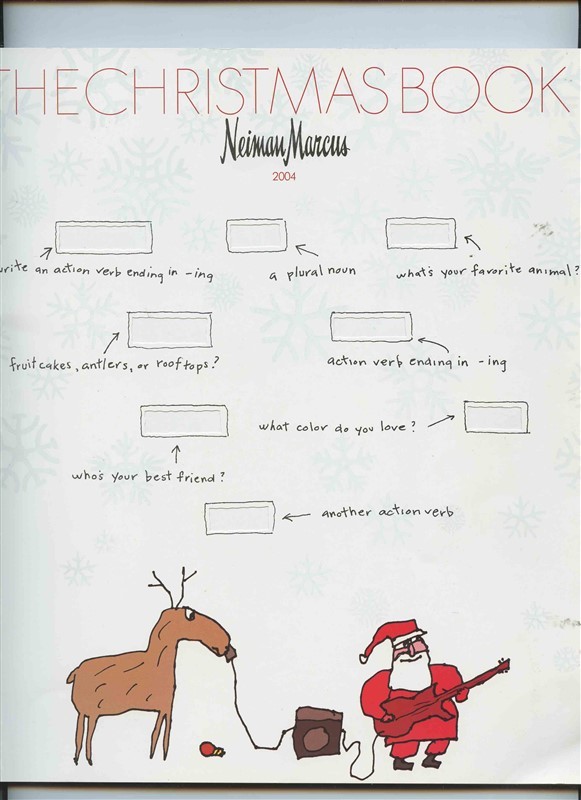 THE CHRISTMAS BOOK
Neiman Marcus
2004
write an action verb ending in -ing
a plural noun
what's your favorite animal?
fruitcakes, antlers, or rooftops?
action verb ending in -ing
what color do you love?
who's your best friend?
another action verb